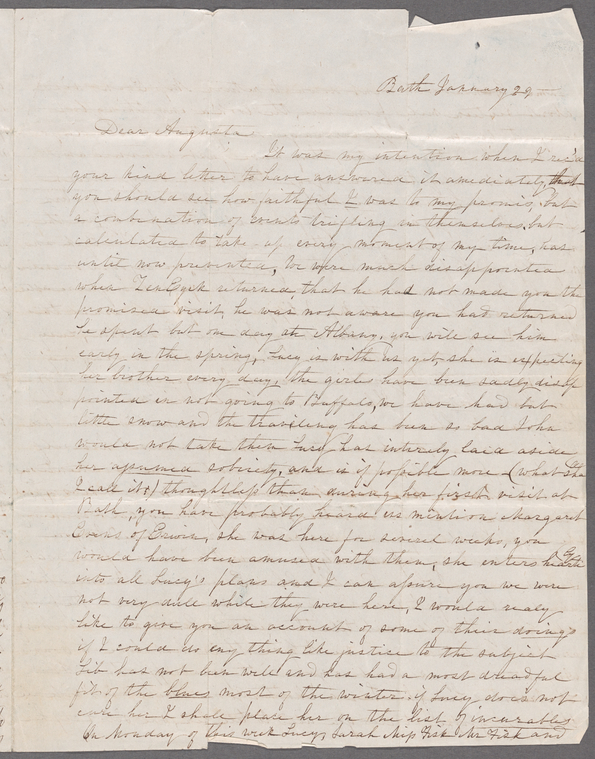 Bath January 29
Dear Augusta
It was my intention when I rec'd
your kind letter to have answered it amediately that
you should see how faithful I was to my promis, but
a combenation of events trifling in themselves, but
calculated to take up every moment of my time, has
until now prevented, We were much disappointed
when TenEyck returned that he had not made you the
promised visit, he was not aware you had returned
he spent but one day at Albany, you will see him
early in the spring, Lucy is with us yet, she is expecting
her brother every day, the girls have been sadly disap
pointed in not going to Buffalo, we have had but
little snow and the traveling has been so bad John
would not take them Lucy has intirely laid aside
her assumed sobriety, and is if possible more (what shall
I call it) thoughtless than during her first visit at
Bath, you have probably heard us mention Margaret
Evans of Erwin, she was here for several weeks, you
would have been amused with them, she enters heart
into all Lucy's plans and I can assure you we were
not very dull while they were here, I would realy
like to give you an account of some of their doings
if I could do any thing like justice to the subject
Lib has not been well and has had a most dreadful
fit of the blues most of the winter, if Lucy does not
cure her I shall place her on the list of incurables
On Monday of this week Lucy, Sarah Miss Fisk Mr Fisk and